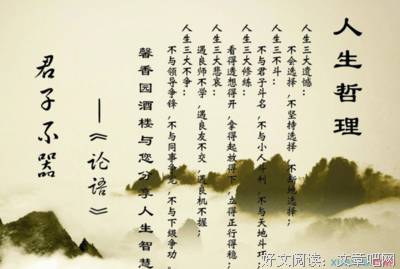 人生哲理
人生三大遗憾:
不会选择,不坚持选择,不断地选择;
人生三不斗:
不与君子斗名,不与小人斗利,不与天地斗巧。
人生三大修练:
看得透想得开,拿得起放得下,立得正行得稳;
人生三大悲哀:
遇良师不学,遇良友不交,遇良机不握;
人生三大不争:
不与领导争锋,不与同事争宠,不与下级争功。
馨香园酒楼与您分享人生智慧
——《论语》
君子不器
好文阅读:文章吧网